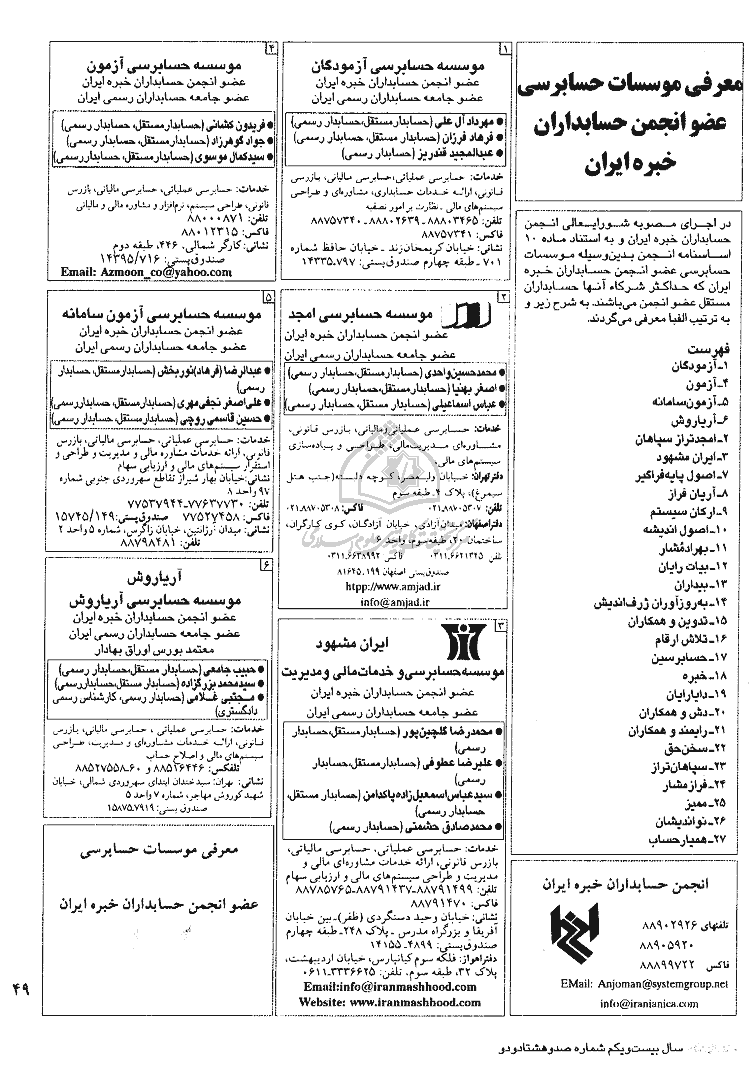 معرفی موسسات حسابرسی
عضو انجمن حسابداران
خبره ایران
در اجرای مصوبه شورایعالی انجمن
حسابداران خبره ایران و به استناد ماده ۱۰
اساسنامه انجمن بدین‌وسیله موسسات
حسابرسی عضو انجمن حسابداران خبره
ایران که حداکثر شرکاء آنها حسابداران
مستقل عضو انجمن می‌باشند. به شرح زیر و
به ترتیب الفبا معرفی می‌گردند.
فهرست
۱-آزمودگان
۴-آزمون
۵-آزمون‌سامانه
۶-آریاروش
۲-امجدتراز سپاهان
۳-ایران مشهود
۷-اصول پایه‌فراگیر
۸-آریان فراز
۹-ارکان سیستم
۱۰-اصول اندیشه
۱۱-بهرادمُشار
۱۲-بیات رایان
۱۳-بیداران
۱۴-به‌روزآوران ژرف‌اندیش
۱۵-تدوین و همکاران
۱۶-تلاش ارقام
۱۷-حسابرسین
۱۸-خبره
۱۹-دایارایان
۲۰-دش و همکاران
۲۱-رایمند و همکاران
۲۲-سخن‌حق
۲۳-سپاهان‌تراز
۲۴-فرازمشار
۲۵-ممیز
۲۶-نواندیشان
۲۷-همیارحساب
انجمن حسابداران خبره ایران
تلفنهای ۸۸۹۰۲۹۲۶
۸۸۹۰۵۹۲۰
فاکس ۸۸۸۹۹۷۲۲
EMail: Anjoman@systemgroup.net
info@iranianica.com
۱
موسسه حسابرسی آزمودگان
عضو انجمن حسابداران خبره ایران
عضو جامعه حسابداران رسمی ایران
● مهرداد آل علی (حسابدار مستقل، حسابدار رسمی)
● فرهاد فرزان (حسابدار مستقل، حسابدار رسمی)
● عبدالمجید قندریز (حسابدار رسمی)
خدمات: حسابرسی عملیاتی، حسابرسی مالیاتی، بازرسی
قانونی، ارائه خدمات حسابداری، مشاوره‌ای و طراحی
سیستم‌های مالی - نظارت بر امور تصفیه
تلفن: ۸۸۸۰۳۴۶۵ - ۸۸۸۰۲۶۳۹ - ۸۸۷۵۷۳۴۰
فاکس: ۸۸۷۵۷۳۴۱
نشانی: خیابان کریمخان‌زند - خیابان حافظ شماره
۷۰۱ - طبقه چهارم صندوق‌پستی: ۱۴۳۳۵.۷۹۷
۲
موسسه حسابرسی امجد
عضو انجمن حسابداران خبره ایران
عضو جامعه حسابداران رسمی ایران
● محمدحسین‌واحدی (حسابدار مستقل، حسابدار رسمی)
● اصغر بهنیا (حسابدار مستقل، حسابدار رسمی)
● عباس اسماعیلی (حسابدار مستقل، حسابدار رسمی)
خدمات: حسابرسی عملیاتی‌ومالیاتی، بازرس قانونی،
مشاوره‌ای مدیریت‌مالی، طراحی و پیاده‌سازی
سیستم‌های مالی.
دفترتهران: خیابان ولیعصر، کوچه دلبسته (جنب هتل
سیمرغ)، پلاک ۴ـ طبقه سوم
تلفن: ۰۲۱.۸۸۷۰۵۳۰۷ فاکس: ۰۲۱.۸۸۷۰۵۳۰۸
دفتراصفهان: میدان‌آزادی، خیابان آزادگان، کوی کارگران،
ساختمان ۲۰، طبقه‌سوم، واحد ۶
تلفن ۰۳۱۱.۶۶۲۱۳۲۵ فاکس ۰۳۱۱.۶۶۳۸۹۹۲
صندوق‌پستی اصفهان ۱۹۹ـ۸۱۶۴۵
htpp://www.amjad.ir
info@amjad.ir
۳
ایران مشهود
موسسه‌حسابرسی‌و خدمات‌مالی‌ومدیریت
عضو انجمن حسابداران خبره ایران
عضو جامعه حسابداران رسمی ایران
● محمدرضا گلچین‌پور (حسابدار مستقل، حسابدار
رسمی)
● علیرضا عطوفی (حسابدار مستقل، حسابدار
رسمی)
● سیدعباس‌اسمعیل‌زاده‌پاکدامن (حسابدار مستقل،
حسابدار رسمی)
● محمدصادق حشمتی (حسابدار رسمی)
خدمات: حسابرسی عملیاتی، حسابرسی مالیاتی،
بازرس قانونی، ارائه خدمات مشاوره‌ای مالی و
مدیریت و طراحی سیستم‌های مالی و ارزیابی سهام
تلفن: ۸۸۷۹۱۴۹۹-۸۸۷۹۱۴۳۷-۸۸۷۸۵۷۶۵
فاکس: ۸۸۷۹۱۴۷۰
نشانی: خیابان وحید دستگردی (ظفر)-بین خیابان
آفریقا و بزرگراه مدرس - پلاک ۲۴۸-طبقه چهارم
صندوق‌پستی: ۴۸۹۹-۱۴۱۵۵
دفتراهواز: فلکه سوم کیانپارس، خیابان اردیبهشت،
پلاک ۳۲، طبقه سوم، تلفن: ۳۳۳۶۶۲۵-۰۶۱۱
Email:info@iranmashhood.com
Website: www.iranmashhood.com
۴
موسسه حسابرسی آزمون
عضو انجمن حسابداران خبره ایران
عضو جامعه حسابداران رسمی ایران
● فریدون کشانی (حسابدار مستقل، حسابدار رسمی)
● جواد گوهرزاد (حسابدار مستقل، حسابدار رسمی)
● سیدکمال موسوی (حسابدار مستقل، حسابدار رسمی)
خدمات: حسابرسی عملیاتی، حسابرسی مالیاتی، بازرس
قانونی، طراحی سیستم، نرم‌افزار و مشاوره مالی و مالیاتی
تلفن: ۸۸۰۰۰۸۷۱
فاکس: ۸۸۰۱۲۳۱۵
نشانی: کارگر شمالی، ۴۴۶، طبقه دوم
صندوق‌پستی: ۱۴۳۹۵/۷۱۶
Email: Azmoon_co@yahoo.com
۵
موسسه حسابرسی آزمون سامانه
عضو انجمن حسابداران خبره ایران
عضو جامعه حسابداران رسمی ایران
● عبدالرضا (فرهاد) نوربخش (حسابدار مستقل، حسابدار
رسمی)
● علی‌اصغر نجفی‌مهری (حسابدار مستقل، حسابدار رسمی)
● حسین قاسمی روچی (حسابدار مستقل، حسابدار رسمی)
خدمات: حسابرسی عملیاتی، حسابرسی مالیاتی، بازرس
قانونی، ارائه خدمات مشاوره مالی و مدیریت و طراحی و
استقرار سیستم‌های مالی و ارزیابی سهام
نشانی: خیابان بهار شیراز تقاطع سهروردی جنوبی شماره
۹۷ واحد ۸
تلفن: ۷۷۶۳۷۷۳۰-۷۷۵۳۷۹۴۴
فاکس: ۷۷۵۲۷۴۵۸ صندوق‌پستی: ۱۵۷۴۵/۱۴۹
نشانی: میدان آرژانتین، خیابان زاگرس، شماره ۵ واحد ۲
تلفن: ۸۸۷۹۸۴۸۱
۶
آریاروش
موسسه حسابرسی آریاروش
عضو انجمن حسابداران خبره ایران
عضو جامعه حسابداران رسمی ایران
معتمد بورس اوراق بهادار
● حبیب جامعی (حسابدار مستقل، حسابدار رسمی)
● سیدمحمد بزرگزاده (حسابدار مستقل، حسابدار رسمی)
● مجتبی غلامی (حسابدار رسمی، کارشناس رسمی
دادگستری)
خدمات: حسابرسی عملیاتی، حسابرسی مالیاتی، بازرس
قانونی، ارائه خدمات مشاوره‌ای و مدیریت، طراحی
سیستم‌های مالی و اصلاح حساب
تلفکس: ۸۸۵۲۶۴۴۶ و ۶۰-۸۸۵۲۷۵۵۸
نشانی: تهران: سیدخندان ابتدای سهروردی شمالی، خیابان
شهیدکوروش مهاجر، شماره ۷ واحد ۵
صندوق پستی: ۱۵۸۷۵.۷۹۱۹
معرفی موسسات حسابرسی
عضو انجمن حسابداران خبره ایران
۴۹
سال بیست‌ویکم شماره صدوهشتادودو